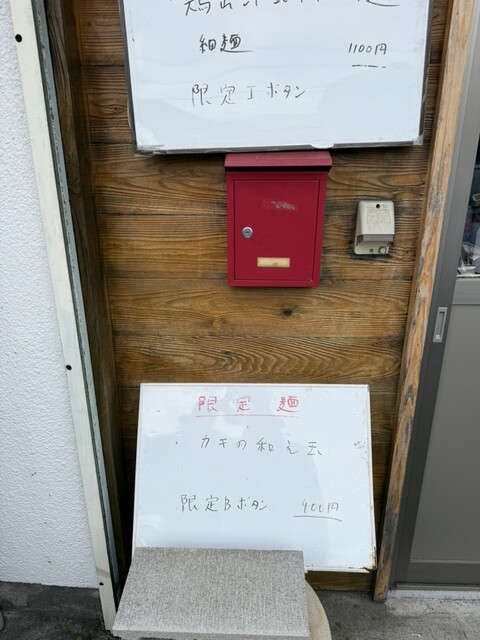 細麺 1100円
限定Iボタン
限定麺
カキの和え玉
限定Bボタン 400円